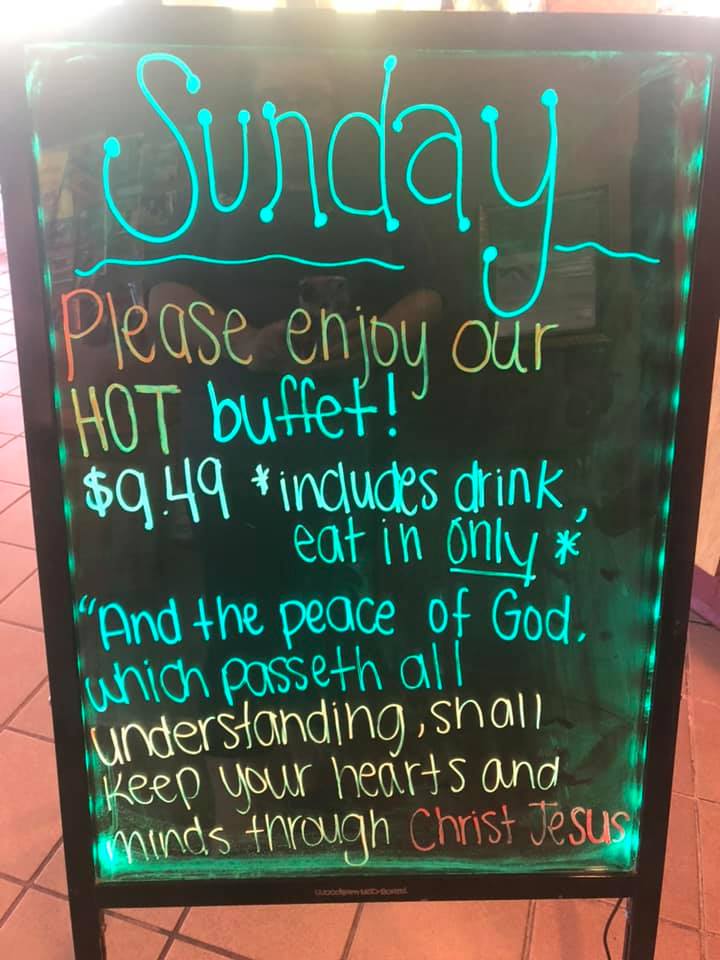 Sunday
Please enjoy our
HOT buffet!
$9.49 *includes drink,
eat in only *
"And the peace of God,
which passeth all
understanding, shall
keep your hearts and
minds through Christ Jesus